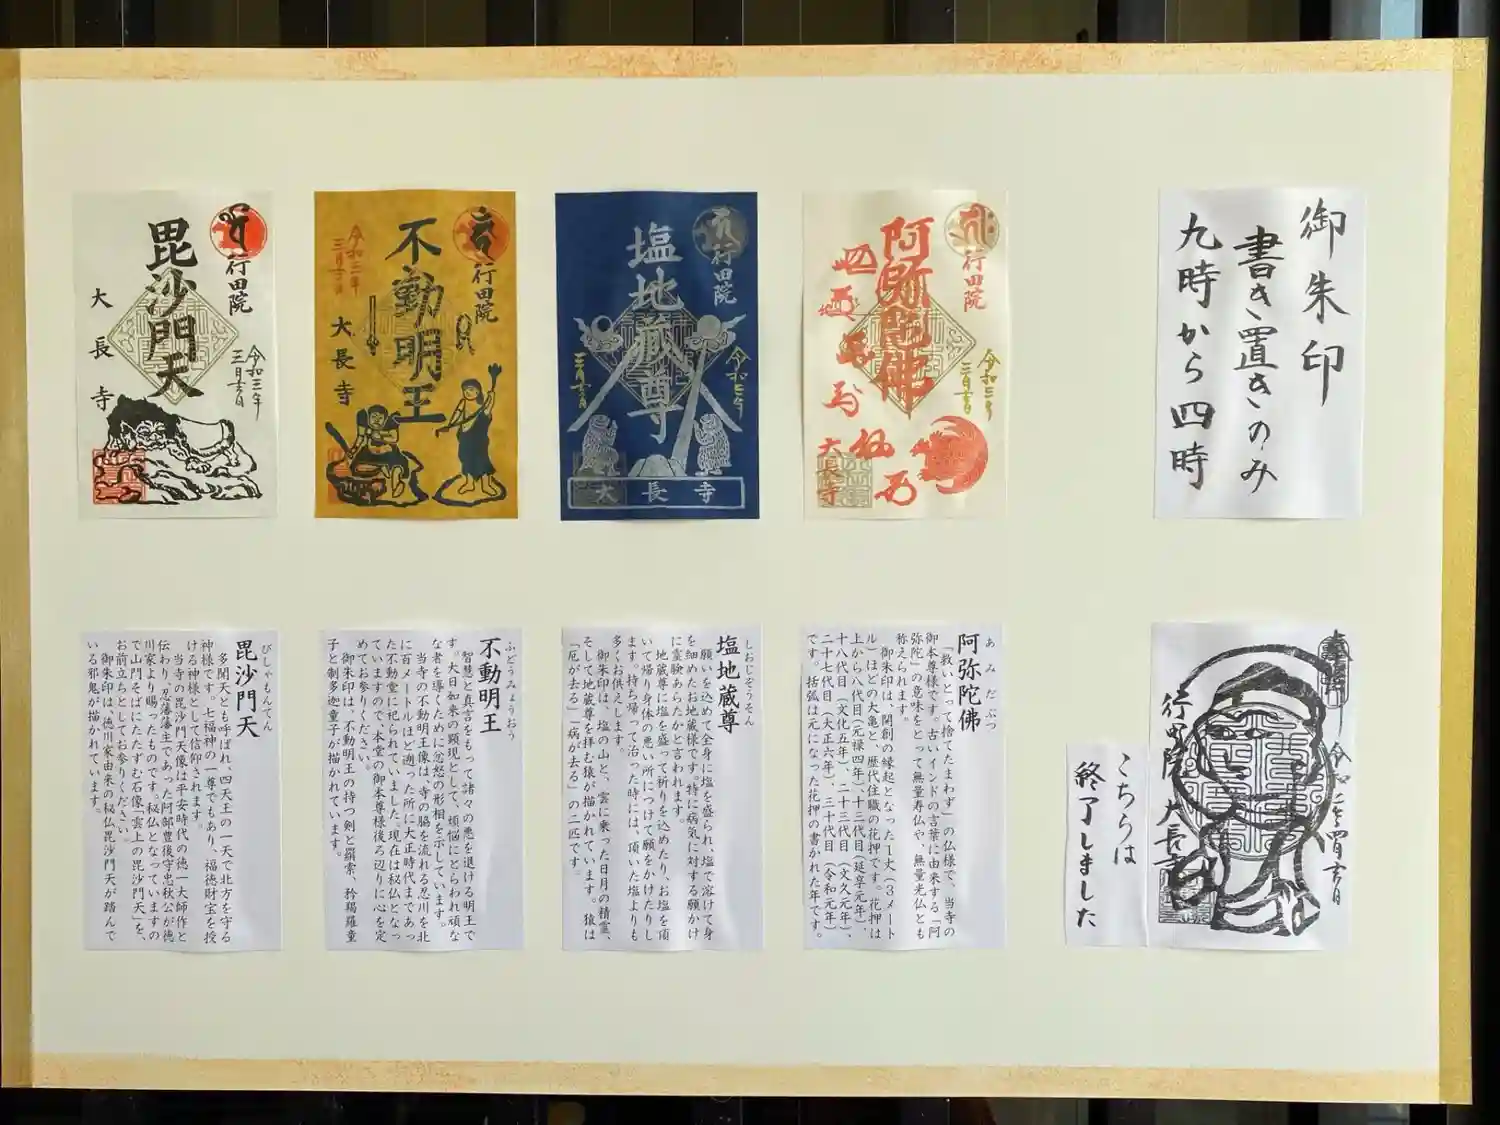 御朱印
書き置きのみ
九時から四時
阿弥陀佛
行田院
令和三年
三月吉日
大長寺
塩地蔵尊
行田院
令和三年
三月吉日
大長寺
不動明王
行田院
令和三年
三月吉日
大長寺
毘沙門天
行田院
令和三年
三月吉日
大長寺
行田院
大長寺
こちらは
終了しました
あみだぶつ
阿弥陀佛
「救いとって捨てたまわず」の仏様で、当寺の
御本尊様です。古いインドの言葉に由来する「阿
弥陀」の意味をとって無量寿仏や、無量光仏とも
称えられます。
御朱印は、開創の縁起となった1丈(3メート
ル)ほどの大亀と、歴代住職の花押です。花押は
上から八代目(元禄四年)、十三代目(延享元年)、
十八代目(文化五年)、二十三代目(文久元年)、
二十七代目(大正六年)、三十代目(令和元年)
です。括弧は元になった花押の書かれた年です。
しおじぞうそん
塩地蔵尊
願いを込めて全身に塩を盛られ、塩で溶けて身
を細めたお地蔵様です。特に病気に対する願かけ
に霊験あらたかと言われます。
地蔵尊に塩を盛って祈りを込めたり、お塩を頂
いて帰り身体の悪い所につけて願をかけたりし
ます。持ち帰って治った時には、頂いた塩よりも
多くお供えします。
御朱印は、塩の山と、雲に乗った日月の精霊、
そして地蔵尊を拝む猿が描かれています。猿は
「厄が去る」「病が去る」の二匹です。
ふどうみょうおう
不動明王
智慧と真言をもって諸々の悪を退ける明王で
す。大日如来の顕現として、煩悩にとらわれ頑な
な者を導くために忿怒の形相を示しています。
当寺の不動明王像は、寺の脇を流れる忍川を北
に百メートルほど遡った所に大正時代まであっ
た不動堂に祀られていました。現在は秘仏となっ
ていますので、本堂の御本尊様後ろ辺りに心を定
めてお参りください。
御朱印は、不動明王の持つ剣と羂索、矜羯羅童
子と制多迦童子が描かれています。
びしゃもんてん
毘沙門天
多聞天とも呼ばれ、四天王の一天で北方を守る
神様です。七福神の一尊でもあり、福徳財宝を授
ける神様として信仰されます。
当寺の毘沙門天像は平安時代の徳一大師作と
伝わり、忍藩藩主であった阿部豊後守忠秋公が徳
川家より賜ったものです。秘仏となっていますの
で山門そばにたたずむ石像「雲上の毘沙門天」を、
お前立ちとしてお参りください。
御朱印は、徳川家由来の秘仏毘沙門天が踏んで
いる邪鬼が描かれています。